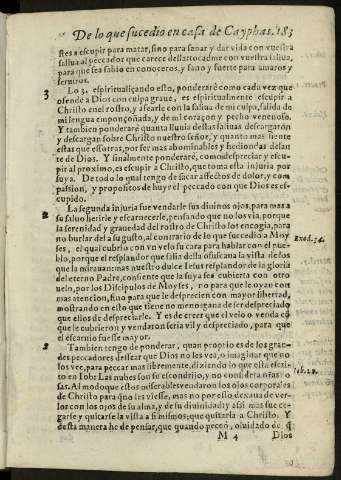 De lo que sucedio en casa de Cayphas. 183
stes a escupir para matar, sino para sanar y dar vida con vuestra
saliua al peccador que carece desta: tocadme con vuestra saliua,
para que sea sabio en conoceros, y sano y fuerte para amaros y
seruiros.
3 Lo 3. espiritualiçando esto, ponderarè como cada vez que
ofende a Dios con culpa graue, es espiritualmente escupir a
Christo en el rostro, y afearle con la saliua de mi culpa, salida de
mi lengua emponçoñada, y de mi coraçon y pecho venenoso.
Y tambien ponderarè quanta lluuia destas saliuas descargaron
y descargan sobre Christo nuestro señor, y quanto mas siente
estas que essotras, por ser mas abominables y hediondas delan
te de Dios. Y finalmente ponderarè, como despreciar y escu-
pir al proximo, es escupir a Christo, que toma esta injuria por
suya. De todo lo qual tengo de sacar affectos de dolor, y com
passion, y propositos de huyr el peccado con que Dios es es-
cupido.
2 La segunda injuria fue vendarle sus diuinos ojos, para mas a
su saluo herirle y escarnecerle, pensando que no los via, porque
la serenidad y grauedad del rostro de Christo los encogia, para
no burlar del a su gusto, al contrario de lo que sucedio a Moy
ses, el qual cubrio con vn velo su cara para hablar con el pue- Exod. 34.
blo, porque el resplandor que salia della ofuscaua la vista de los
que la mirauan: mas nuestro dulce Iesus resplandor de la gloria
del eterno Padre, consiente que la suya sea cubierta con otro
velo, por los Discipulos de Moyses, no para que le oyan con
mas atencion, sino para que le desprecien con mayor libertad,
mostrando en esto que tiene no menos gana de ser despreciado
que ellos de despreciarle. Y es de creer que el velo o venda cõ
que le cubrieron y vendaron seria vil y despreciado, para que
el escarnio fuesse mayor.
2 Tambien tengo de ponderar, quan proprio es de los gran-
des peccadores dessear que Dios no les vea, o imaginar que no
los vee, para peccar mas libremente, diziendo lo que està escri-
to en Iob: Las nubes son su escondrijo, y no considera nr̃as co Iob. 22.
sas. Al modo que estos miserables vendaron los ojos corporales
de Christo para que no les viesse, mas no por esso dexaua de ver-
los con los ojos de su alma, y de su diuinidad: y assi mas fue ce-
garse y quitarse la vista a si mismos, que quitarla a Christo. Y
desta manera he de pensar, que quando pequè, oluidado de q̃
M 4 Dios